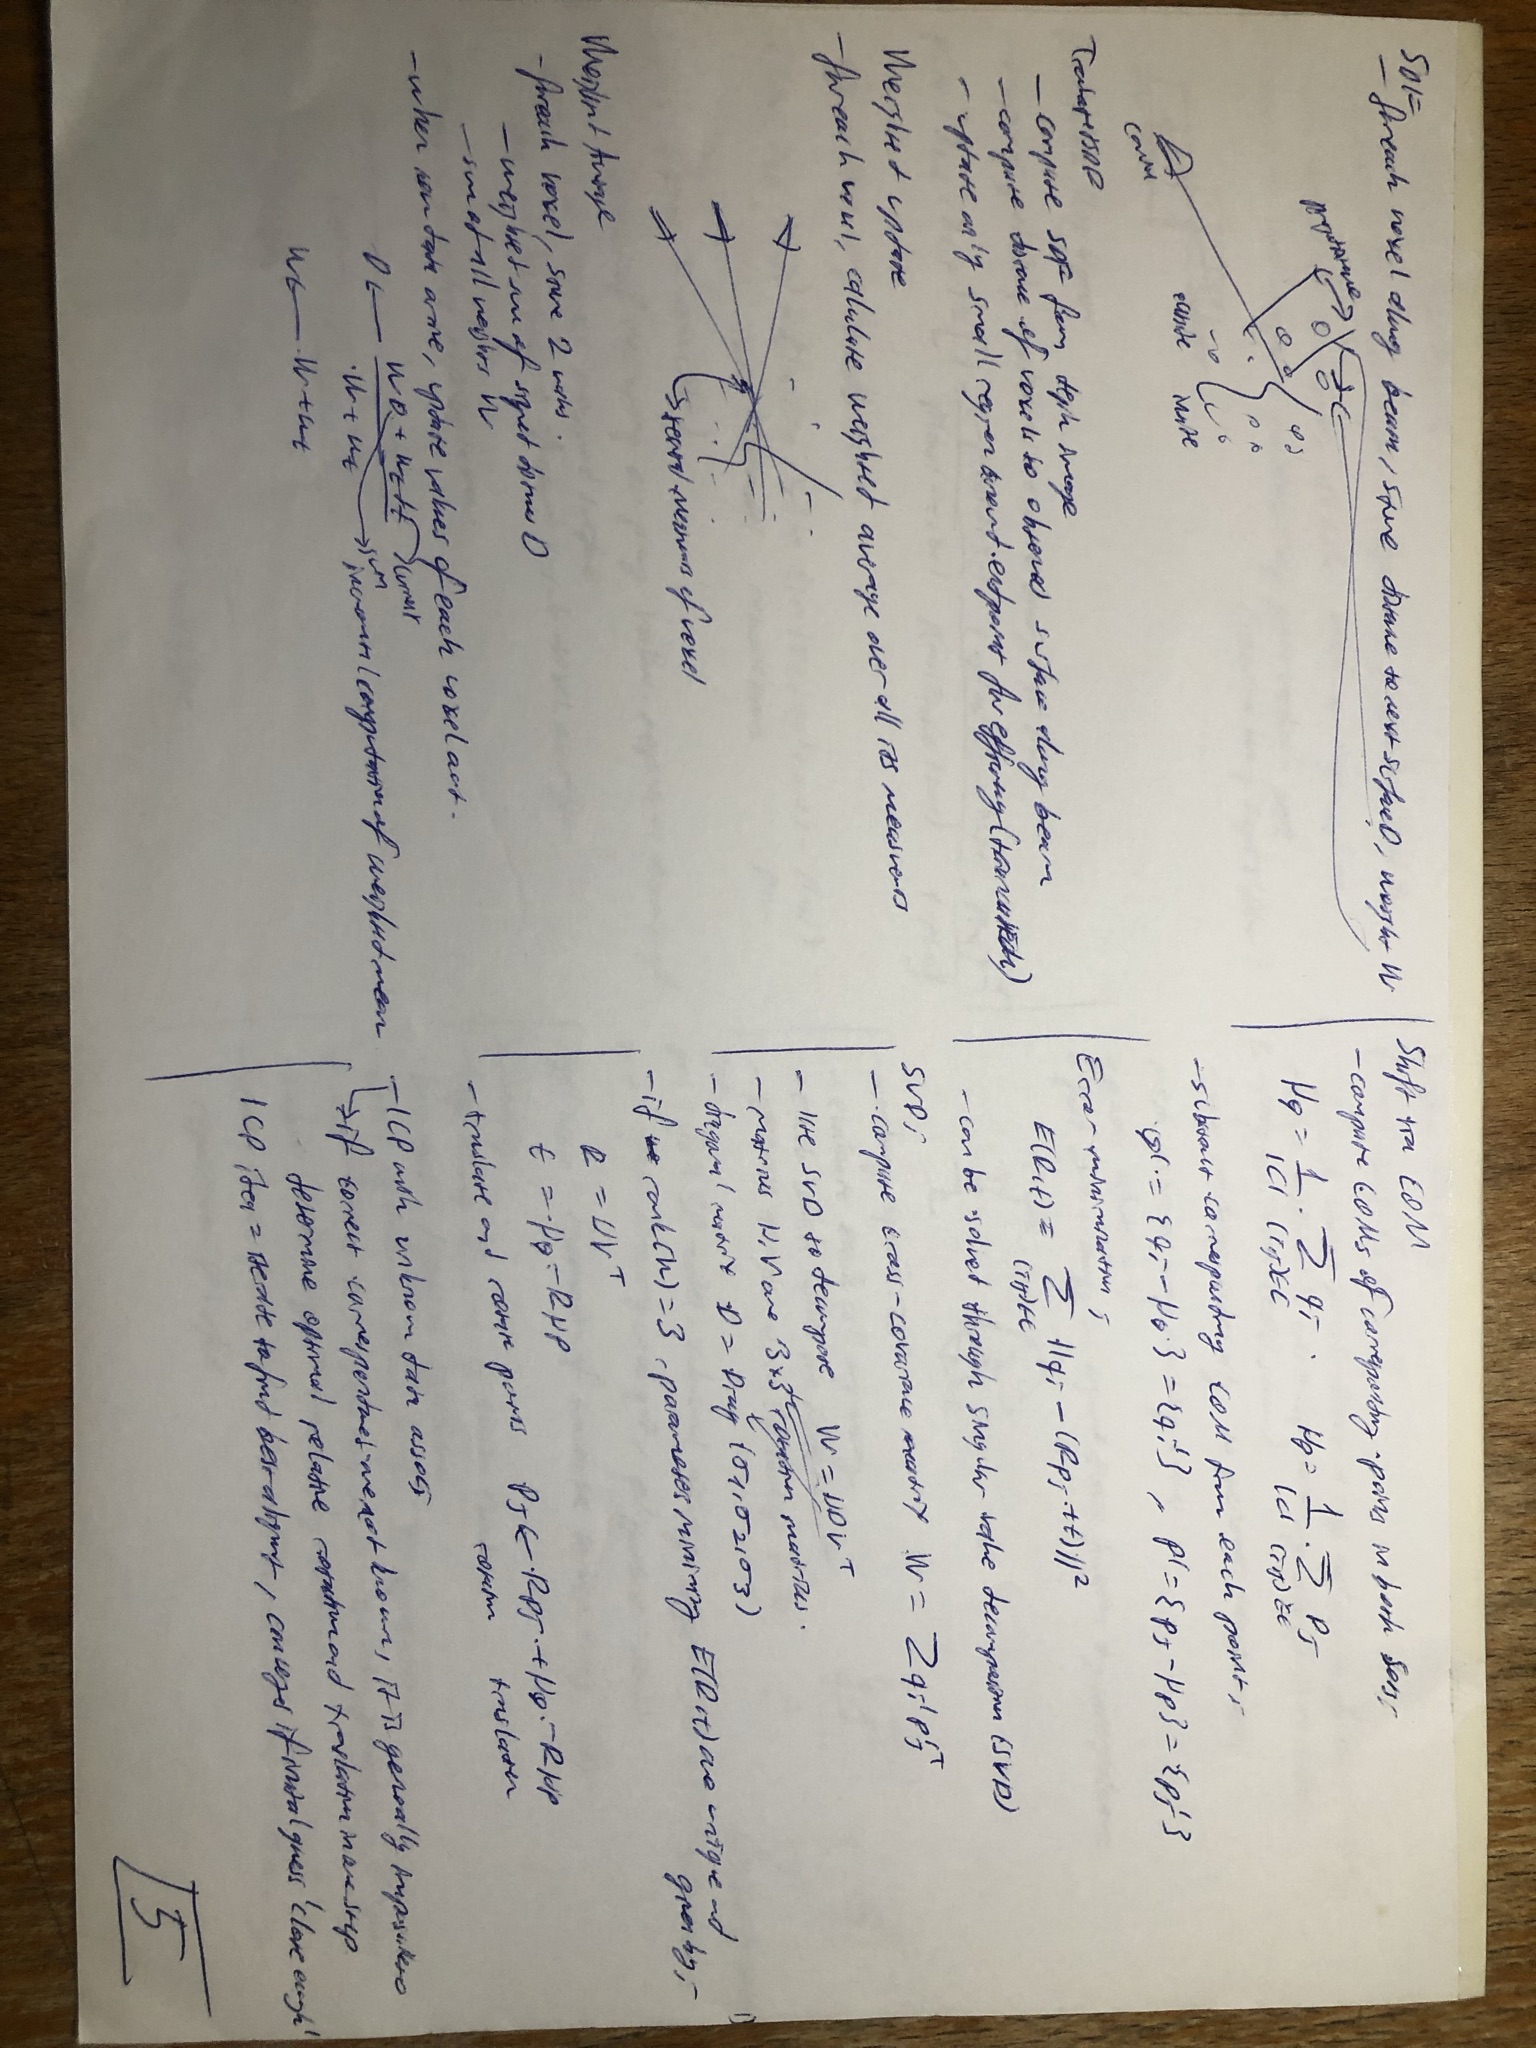 SDF
- for each voxel along beam, store distance to next surface D, weight W
cam
outside
inside
Truncated SDF
- compute SDF from depth image
- compute distance of voxels to observed surface along beam
- update only small region around endpoint for efficiency (truncated)
Weighted update
- for each voxel, calculate weighted average over all its measurements
several measurements of voxel
Weighted Average
- for each voxel, store 2 values.
- weighted sum of signed distances D
- sum of all weights W
- when new data arrive, update values of each voxel acct.
D ← WD + wt dt / W + wt
current
sum
incremental computation of weighted mean
W ← W + wt
Shift via COM
- compute COMs of corresponding points in both sets:
μQ = 1/|C| · Σ (i,j)∈C qi . μP = 1/|C| · Σ (i,j)∈C pj
- subtract corresponding COM from each point:
Q' = {qi - μQ} = {qi'}, P' = {pj - μP} = {pj'}
Error minimization:
E(R,t) = Σ (i,j)∈C ||qi - (Rpj + t)||²
- can be solved through singular value decomposition (SVD)
SVD:
- compute cross-covariance matrix W = Σ qi' pj'T
- use SVD to decompose W = UDVT
- matrices U, V are 3x3 rotation matrices.
- diagonal matrix D = Diag (σ1, σ2, σ3)
- if rank(W) = 3, parameters minimizing E(R,t) are unique and
given by:
R = UVT
t = μQ - RμP
- translate and rotate points Pj ← Rpj + μQ - RμP
rotation translation
- ICP with unknown data assoc
↳ if correct correspondences are not known, it is generally impossible to
determine optimal relative rotation and translation in one step
ICP iter = iterate to find best alignment, converges if initial guess 'close enough'
5